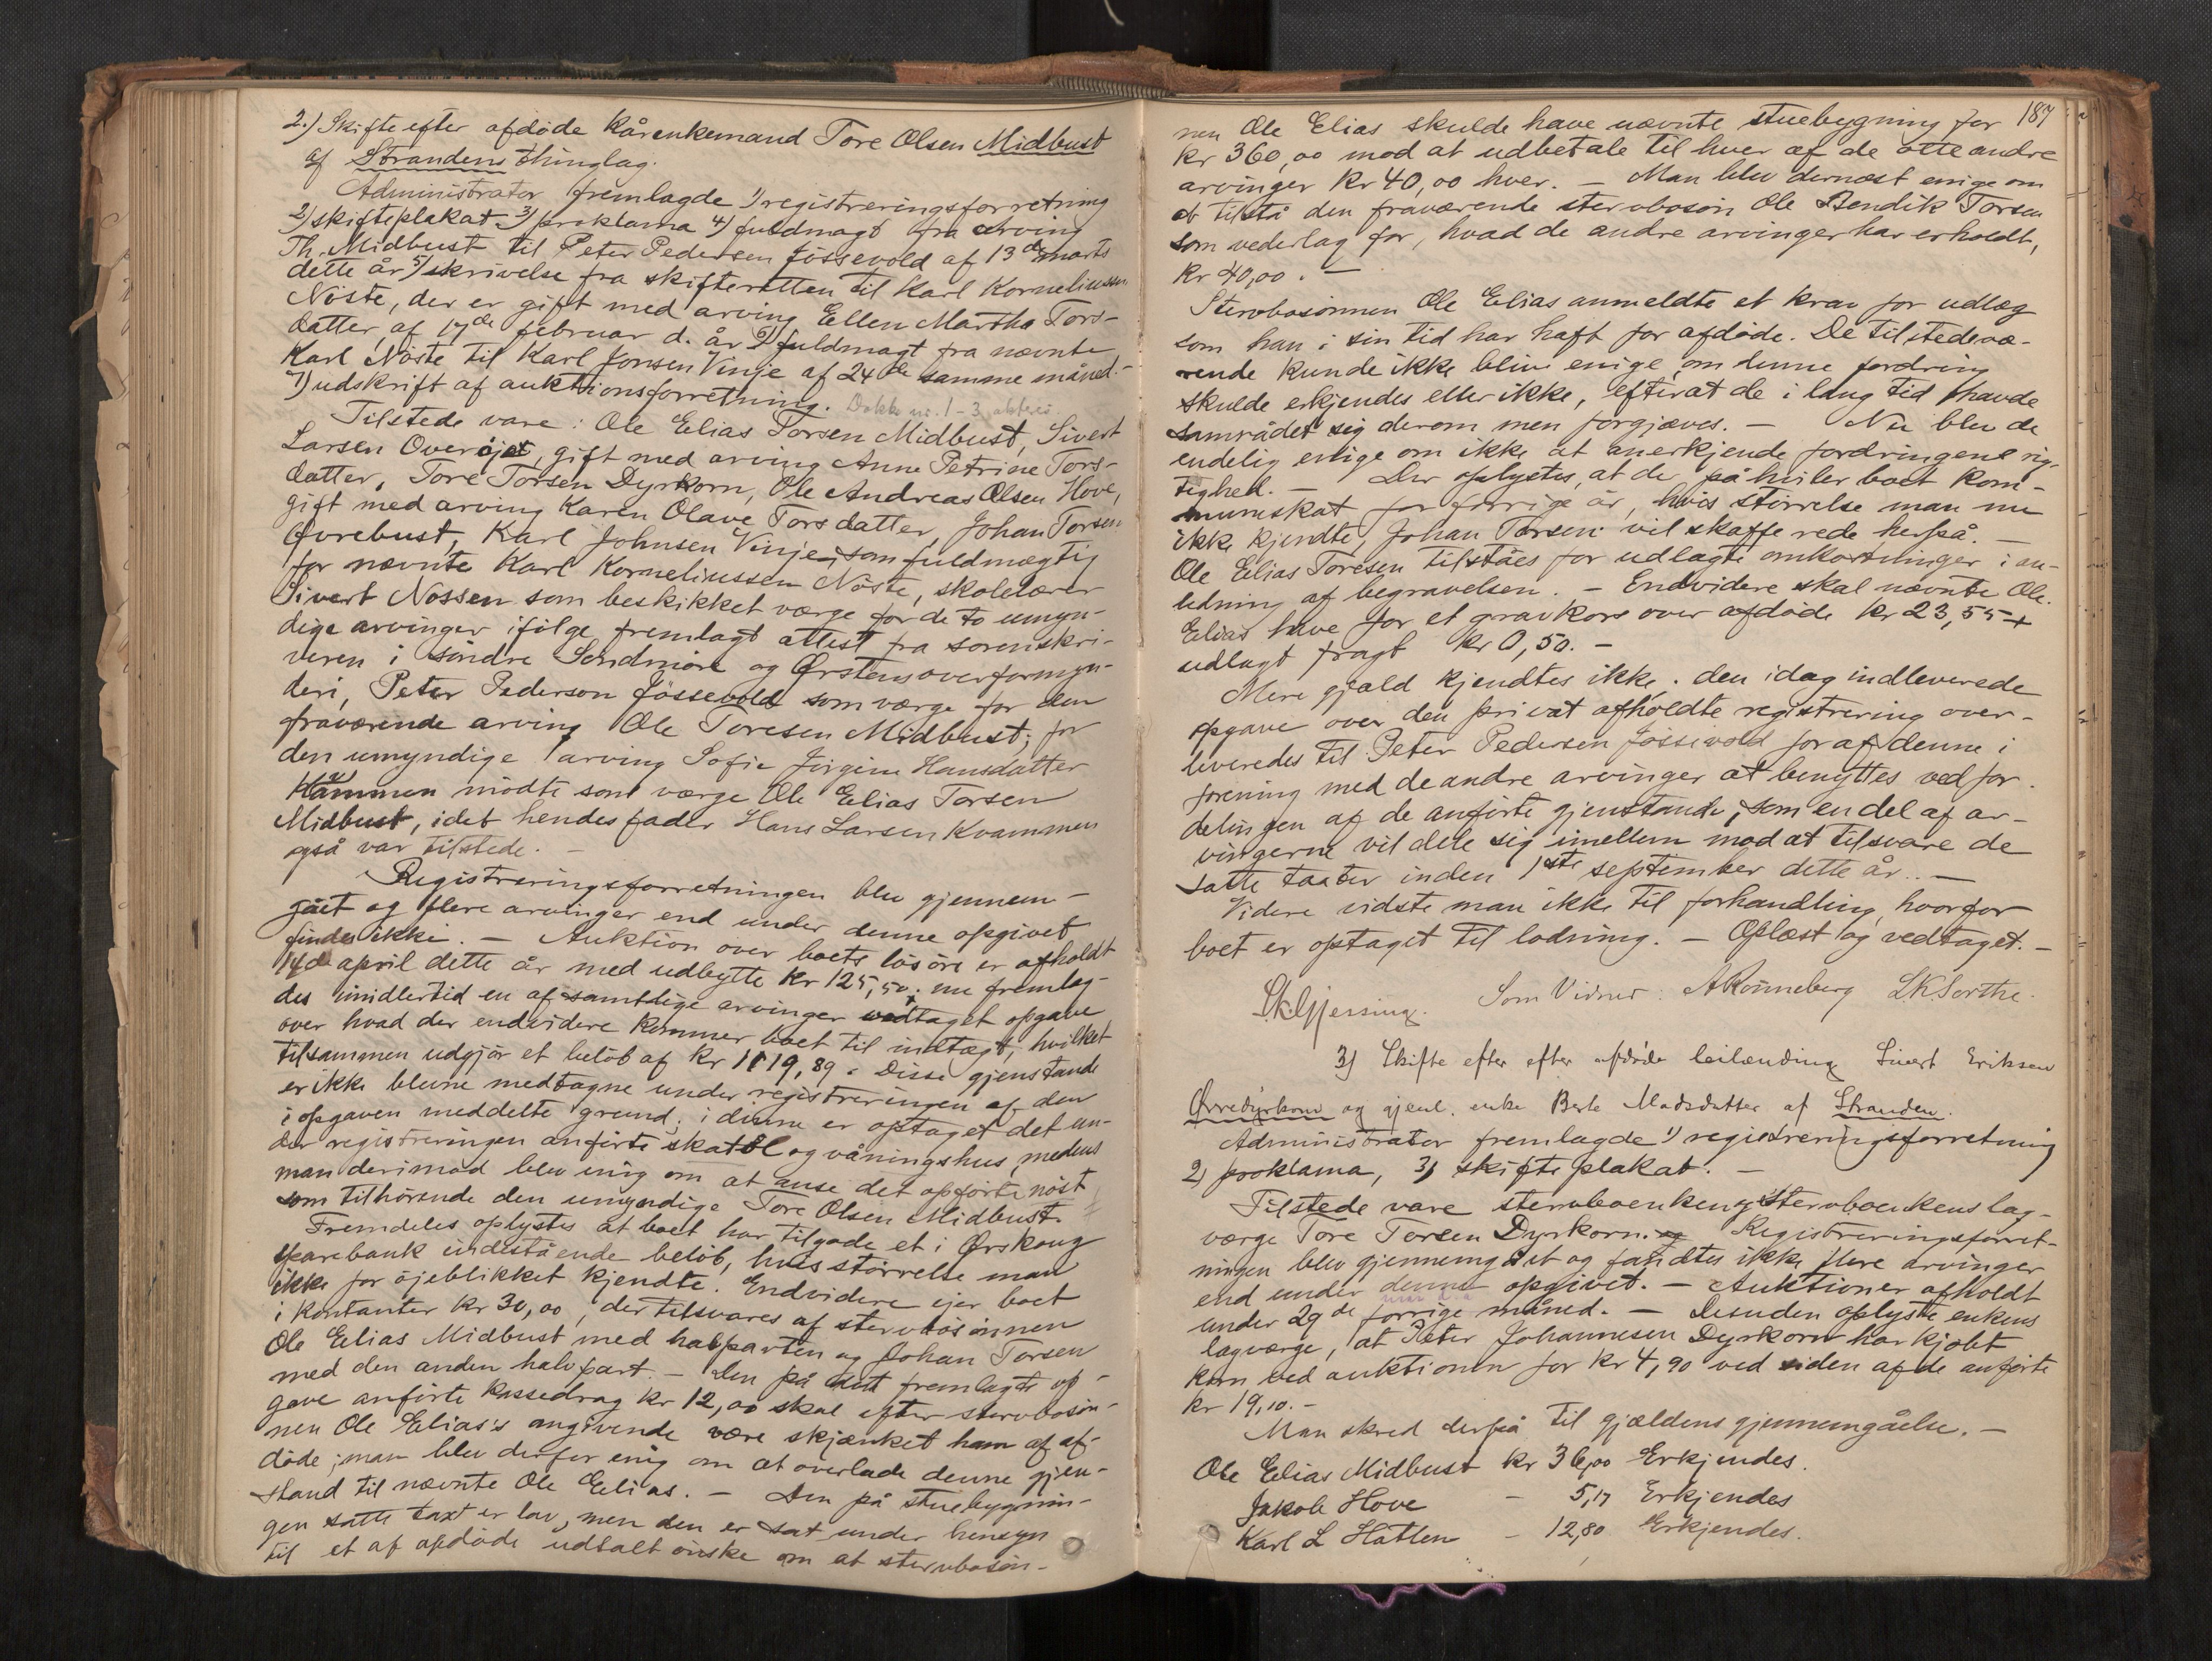 2.) Skifte efter afdöde kårenkemand Tore Olsen Midbust
af Strandens thinglag.
Administrator fremlagde 1) registreringsforretning
2) skifteplakat 3) proklama 4) fuldmagt fra arving
Th. Midbust til Peter Pedersen Jössevold af 13de marts
dette år 5) skrivelse fra skifteretten til Karl Korneliussen
Nöste, der er gift med arving Ellen Martha Tors-
datter, af 17de februar d. år 6) fuldmagt fra nævnte
Karl Nöste til Karl Jonsen Vinje af 24de samme måned.-
7) udskrift af auktionsforretning. Dokk nr. 1-3
Tilstede vare: Ole Elias Torsen Midbust, Sivert
Larsen Överöjet, gift med arving Anne Petrine Tors-
datter, Tore Torsen Dyrkorn, Ole Andreas Olsen Hove,
gift med arving Karen Olave Torsdatter, Johan Torsen
Övrebust, Karl Johnsen Vinje som fuldmægtig
for nævnte Karl Korneliussen Nöste, skolelærer
Sivert Nossen som beskikket værge for de to umyn-
dige arvinger ifölge fremlagt attest fra sorenskri-
veren i söndre Söndmöre og Örstens overformyn-
deri, Peter Pederson Jössevold som værge for den
fraværende arving Ole Toresen Midbust; for
den umyndige arving Sofie Jörgine Hansdatter
Kvammen mödte som værge Ole Elias Torsen
Midbust, idet hendes fader Hans Larsen Kvammen
også var tilstede. -
Registreringsforretningen blev gjennem-
gået og flere arvinger end under denne opgivet
findes ikke. - Auktion over boets lösöre er afholdt
14de april dette år med udbytte kr 125,50; nu fremlag-
des imidlertid en af samtlige arvinger vedtaget opgave
over hvad der endvidere kommer boet til indtægt, hvilket
tilsammen udgjör et belöb af kr 1119,89. Disse gjenstande
er ikke blevne medtagne under registreringen af den
i opgaven meddelte grund; i denne er optaget det un-
der registreringen anförte skatol og våningshus, medens
man derimod blev enig om at anse det opförte nöst
som tilhörende den umyndige Tore Olsen Midbust.
Fremdeles oplystes at boet har tilgode et i Örskoug
sparebank indestående belöb, hvis störrelse man
ikke for öjeblikket kjendte. Endvidere ejer boet
i kontanter kr 30,00, der tilsvares af stervbosönnen
Ole Elias Midbust med halvparten og Johan Torsen
med den anden halvpart. - Den på det fremlagte op-
gave anförte kassedrag kr 12,00 skal efter stervbosön-
nen Ole Elias's angivende være skjænket ham af af-
döde; man blev derfor enig om at overlade denne gjen-
stand til nævnte Ole Elias. - Den på stuebygnin-
gen satte taxt er lav, men den er sat under hensyn
til et af afdöde udtalt önske om at stervbosön-
187
nen Ole Elias skulde have nævnte stuebygning for
kr 360,00 mod at udbetale til hver af de otte andre
arvinger kr 40,00 hver. - Man blev dernæst enige om
at tilstå den fraværende stervbosön Ole Bendik Torsen
som vederlag for, hvad de andre arvinger har erholdt,
kr 40,00. -
Stervbosönnen Ole Elias anmeldte et krav for udlæg
som han i sin tid har haft for afdöde. De tilstedevæ-
rende kunde ikke blive enige om denne fordring
skulde erkjendes eller ikke, efterat de i lang tid havde
samrådet sig derom men forgjæves. - Nu blev de
endelig enige om ikke at anerkjende fordringens rig-
tighed. - Der oplystes, at der påhviler boet kom-
muneskat for forrige år, hvis störrelse man nu
ikke kjendte, Johan Torsen vil skaffe rede herpå. -
Ole Elias Toresen tilståes for udlagte omkostninger i an-
ledning af begravelsen. - Endvidere skal nævnte Ole
Elias have for et gravkors over afdöde kr 23,55 +
udlagt fragt kr 0,50. -
Mere gjæld kjendtes ikke. den idag indleverede
opgave over den privat afholdte registrering over-
leveredes til Peter Pedersen Jössevold for af denne i
forening med de andre arvinger at benyttes ved for-
delingen af de anförte gjenstande, som en del af ar-
vingerne vil dele sig imellem mod at tilsvare de
satte taxter inden 1ste september dette år. -
Videre vidste man ikke til forhandling, hvorfor
boet er optaget til lodning. - Oplæst og vedtaget. -
Sk. Gjersing. Som Vidner: A Rönneberg LK Sorthe.
3) Skifte efter efter afdöde leilænding Sivert Eriksen
Övredyrkorn og gjenl. enke Berte Madsdatter af Stranden.
Administrator fremlagde 1) registreringsforretning
2) proklama, 3) skifteplakat. -
Tilstede vare stervboenken og stervboenkens lag-
værge Tore Torsen Dyrkorn. Registreringsforret-
ningen blev gjennemgået og fandtes ikke flere arvinger
end under denne opgivet. - Auktioner afholdt
under 29de forrige måned. - Desuden oplyste enkens
lagværge, at Peter Johannesen Dyrkorn har kjöbt
korn ved auktionen for kr 4,90 ved siden af de anförte
kr 19,10. -
Man skred derpå til gjældens gjennemgåelse. -
Ole Elias Midbust kr 36,00 Erkjendes.
Jakob Hove - 5,17 Erkjendes
Karl L Hatlen - 12,80 Erkjendes.